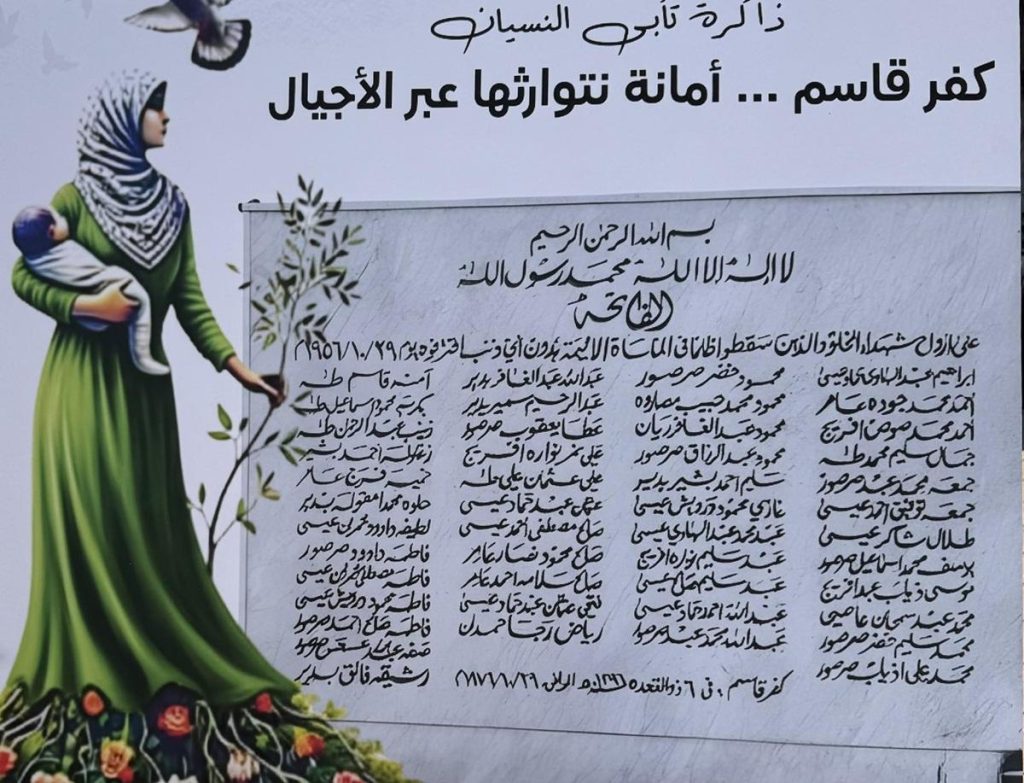 ذاكرة تأبى النسيان
كفر قاسم ... أمانة نتوارثها عبر الأجيال
بسم الله الرحمن الرحيم
لا إله إلا الله محمد رسول الله
الفاتحه
على ارواح شهداء الخلود الذين سقطوا ظلما في المأساة الاليمة بدون أي ذنب اقترفوه يوم ٢٩/١٠/١٩٥٦م
ابراهيم عبد الهادي عيسى
أحمد محمد جوده عامر
أحمد محمد صوص افريج
جمال سليم محمد طه
جمعه محمد عبد صرصور
جمعه توفيق احمد عيسى
طلال شاكر عيسى
يوسف محمد اسماعيل صرصور
موسى ذياب عبد افريج
محمد عبد سمحان عاصي
محمد سليم خضر صرصور
محمد علي اذياب صرصور
محمود خضر صرصور
محمود محمد حبيب مصاروه
محمود عبد الغافر ريان
محمود عبد الرزاق صرصور
سليم احمد بشير بدير
غازي محمود درويش عيسى
عبد محمد عبد الهادي عيسى
عبد سليم نواره افريج
عبد سليم صالح عيسى
عبد الله احمد حماد عيسى
عبد الله محمد عبد صرصور
عبد الله عبد الغافر بدير
عبد الرحيم سمير بدير
عطا يعقوب صرصور
علي نمر نواره افريج
علي عثمان علي طه
عثمان عبد حماد عيسى
صالح مصطفى أحمد عيسى
صالح محمود نصار عامر
صالح سلامه احمد عامر
فتحي عثمان عبد حماد عيسى
رياض رجا حمدان
آمنه قاسم طه
بكريه محمود اسماعيل طه
زينب عبد الرحمن طه
زغلوله احمد بشير
خميسه فرج عامر
حلوه محمد بدير
لطيفه داوود عيسى
فاطمه داوود صرصور
فاطمه مصطفى عيسى
فاطمه محمود درويش عيسى
فاطمه صالح احمد صرصور
صفيه عبد الله صرصور
رشيقه فائق بدير
كفر قاسم : في ٦ ذو القعده ١٣٩٦ه الموافق ٢٩/١٠/١٩٧٦م